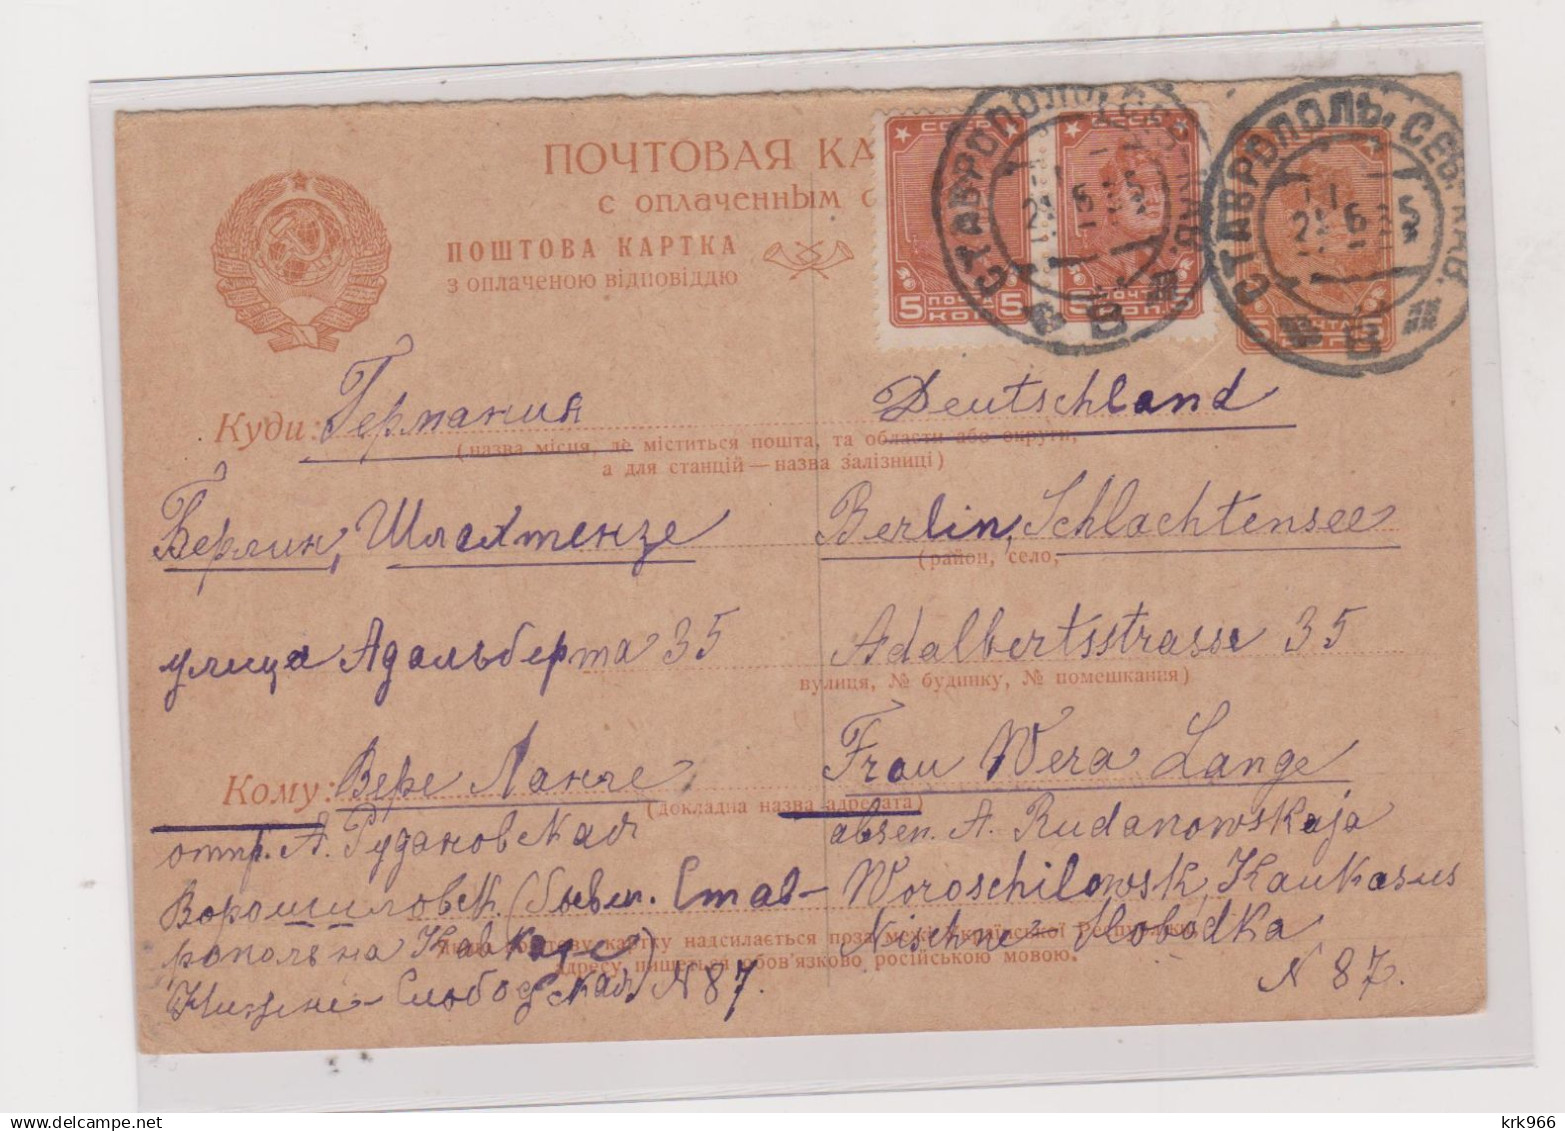 ПОЧТОВАЯ КА
с оплаченным о
ПОШТОВА КАРТКА
з оплаченою відповіддю
СССР
5 ПОЧТА 5
КОП
СССР
5 ПОЧТА
КОП
СТАВРОПОЛЬ
21 6 35
В
СТАВРОПОЛЬ, СЕВ. КАВ.
21 6 35
В
Куди: Германия Deutschland
(назва місця, де міститься пошта, та області або округи,
а для станцій — назва залізниці)
Берлин, Шлахтензе Berlin, Schlachtensee
(район, село,
улица Адальберта 35 Adalbertsstrasse 35
вулиця, № будинку, № помешкання)
Кому: Вере Ланге Frau Wera Lange
(докладна назва адресата)
отпр. А. Рудановская absen. A. Rudanowskaja
Ворошиловск. (бывш. Став- Woroschilowsk, Kaukasus
рополь на Кавказе) Nischne-Slobodka
Якщо поштову картку надсилається поза межі Української Республіки,
адресу пишеться обов'язково російською мовою.
Нижне-Слободская N 87. N 87.
krk966